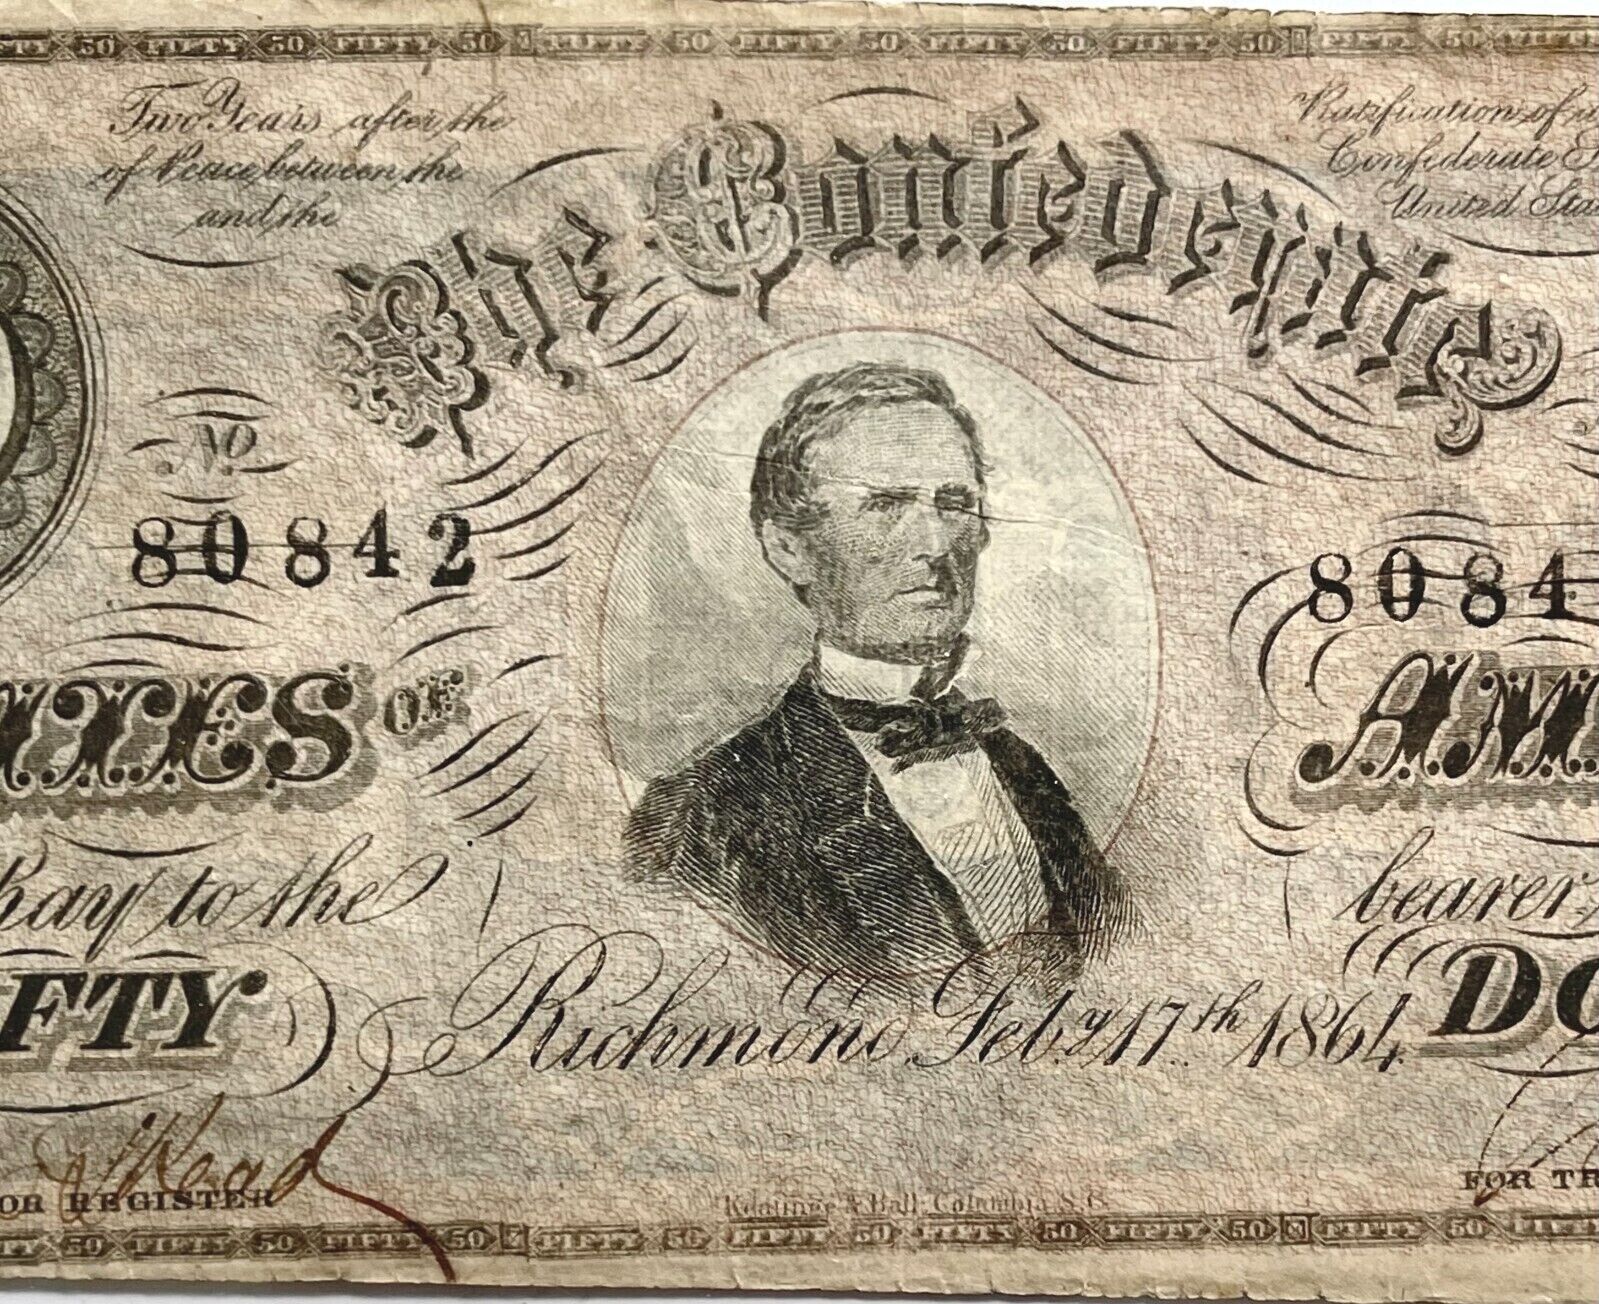 FIFTY 50 FIFTY 50 FIFTY 50 FIFTY 50 FIFTY 50 FIFTY 50 FIFTY 50 FIFTY 50
Two Years after the
of Peace between the
and the
Ratification of
Confederate S
United Sta
The Confederate
No
80842
8084
ATES OF
AM
pay to the
bearer
FTY
DO
Richmond Feby 17th 1864
Read
OR REGISTER
FOR TR
Keatinge & Ball, Columbia S.C.
50 FIFTY 50 FIFTY 50 FIFTY 50 FIFTY 50 FIFTY 50 FIFTY 50 FIFTY 50 FIFTY